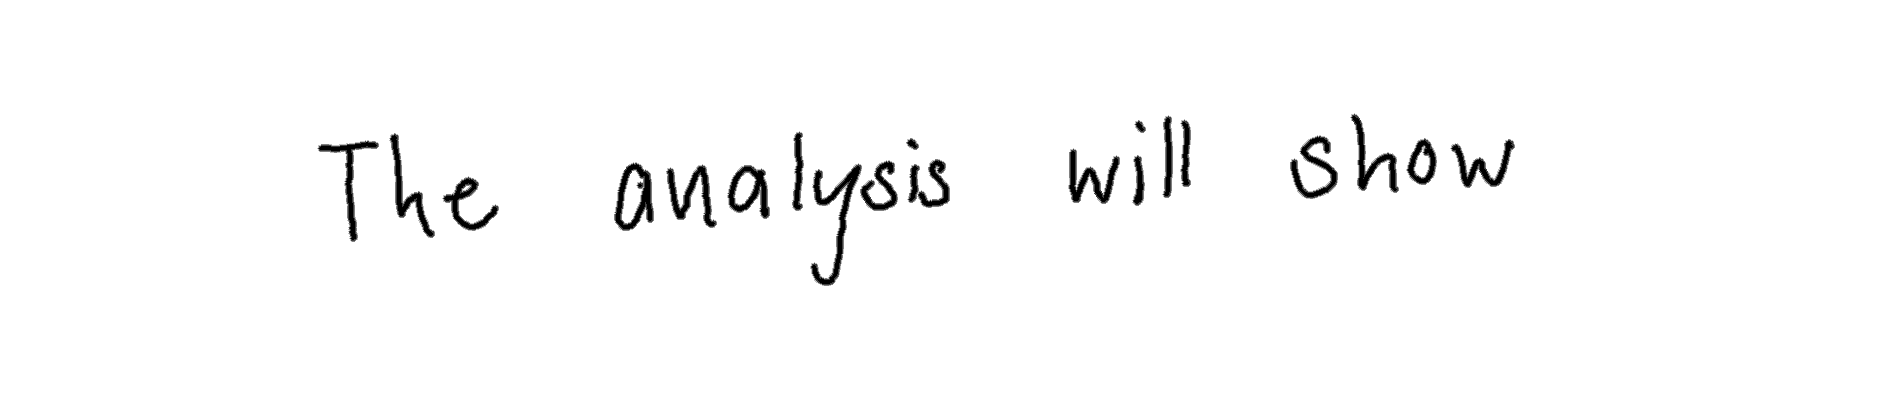 The analysis will show